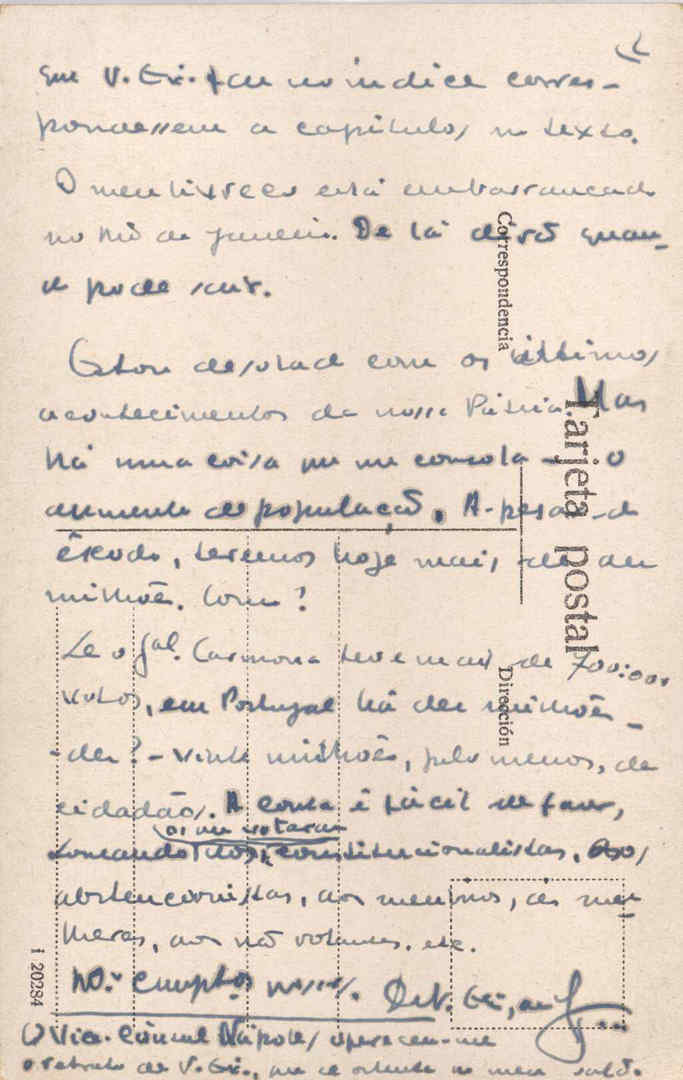 que V. Ex. no indice corres-
pondessem a capitulos no texto.
O meu livreco está embarrancado
no Rio de Janeiro. De lá dirão quan-
do pode sair.
Estou desolado com os últimos
acontecimentos da nossa Pátria. Mas
há uma coisa que me consola — o
aumento de população. A-pesar-do
êxodo, teremos hoje mais de dez
milhões. Como?
Se o Gal. Carmona teve mais de 700:000
votos, em Portugal há dez milhões —
- dez? - vinte milhões, pelo menos, de
cidadãos. A conta é fácil de fazer,
os que votaram
somando aos constitucionalistas, aos
abstencionistas, aos meninos, ás mu-
lheres, aos não votantes, etc.
De V. Ex.,
O Vice-Cônsul Nápoles ofereceu-me
o retrato de V. Ex., que se ostenta no meu salão.
Correspondencia
Tarjeta postal
Dirección
1 20284